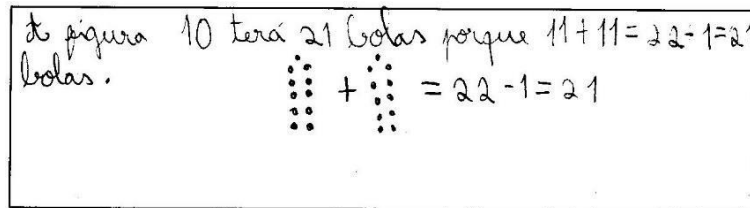 A figura 10 terá 21 bolas porque 11+11=22-1=21
bolas.
+ = 22-1=21